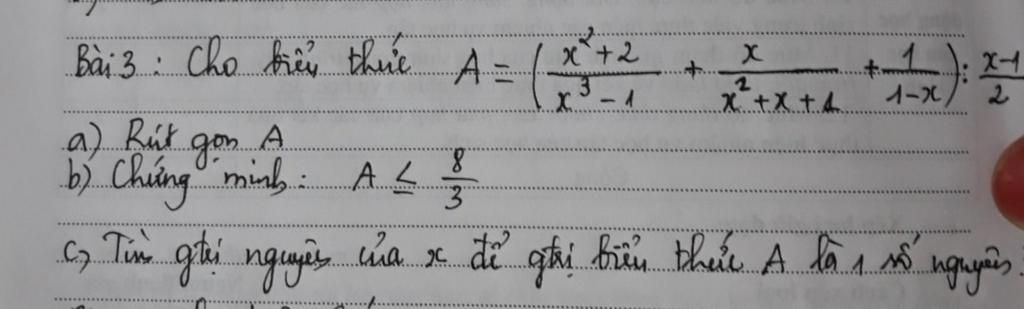 Bài 3 : Cho biểu thức A = (\frac{x^2+2}{x^3-1} + \frac{x}{x^2+x+1} + \frac{1}{1-x}) : \frac{x-1}{2}
a) Rút gọn A
b) Chứng minh : A ≤ \frac{8}{3}
c, Tìm gtrị nguyên của x để gtrị biểu thức A là 1 số nguyên